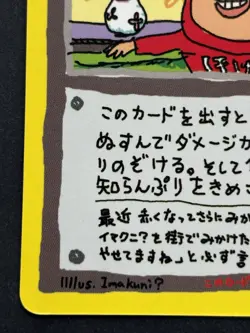 このカードを出すと
ぬすんでダメージカ
りのぞける。そして
知らんぷりをきめこ
最近 赤くなってさらにみが
イマクニ？を街でみかけた
やせてますね」と必ず言
Illus. Imakuni?